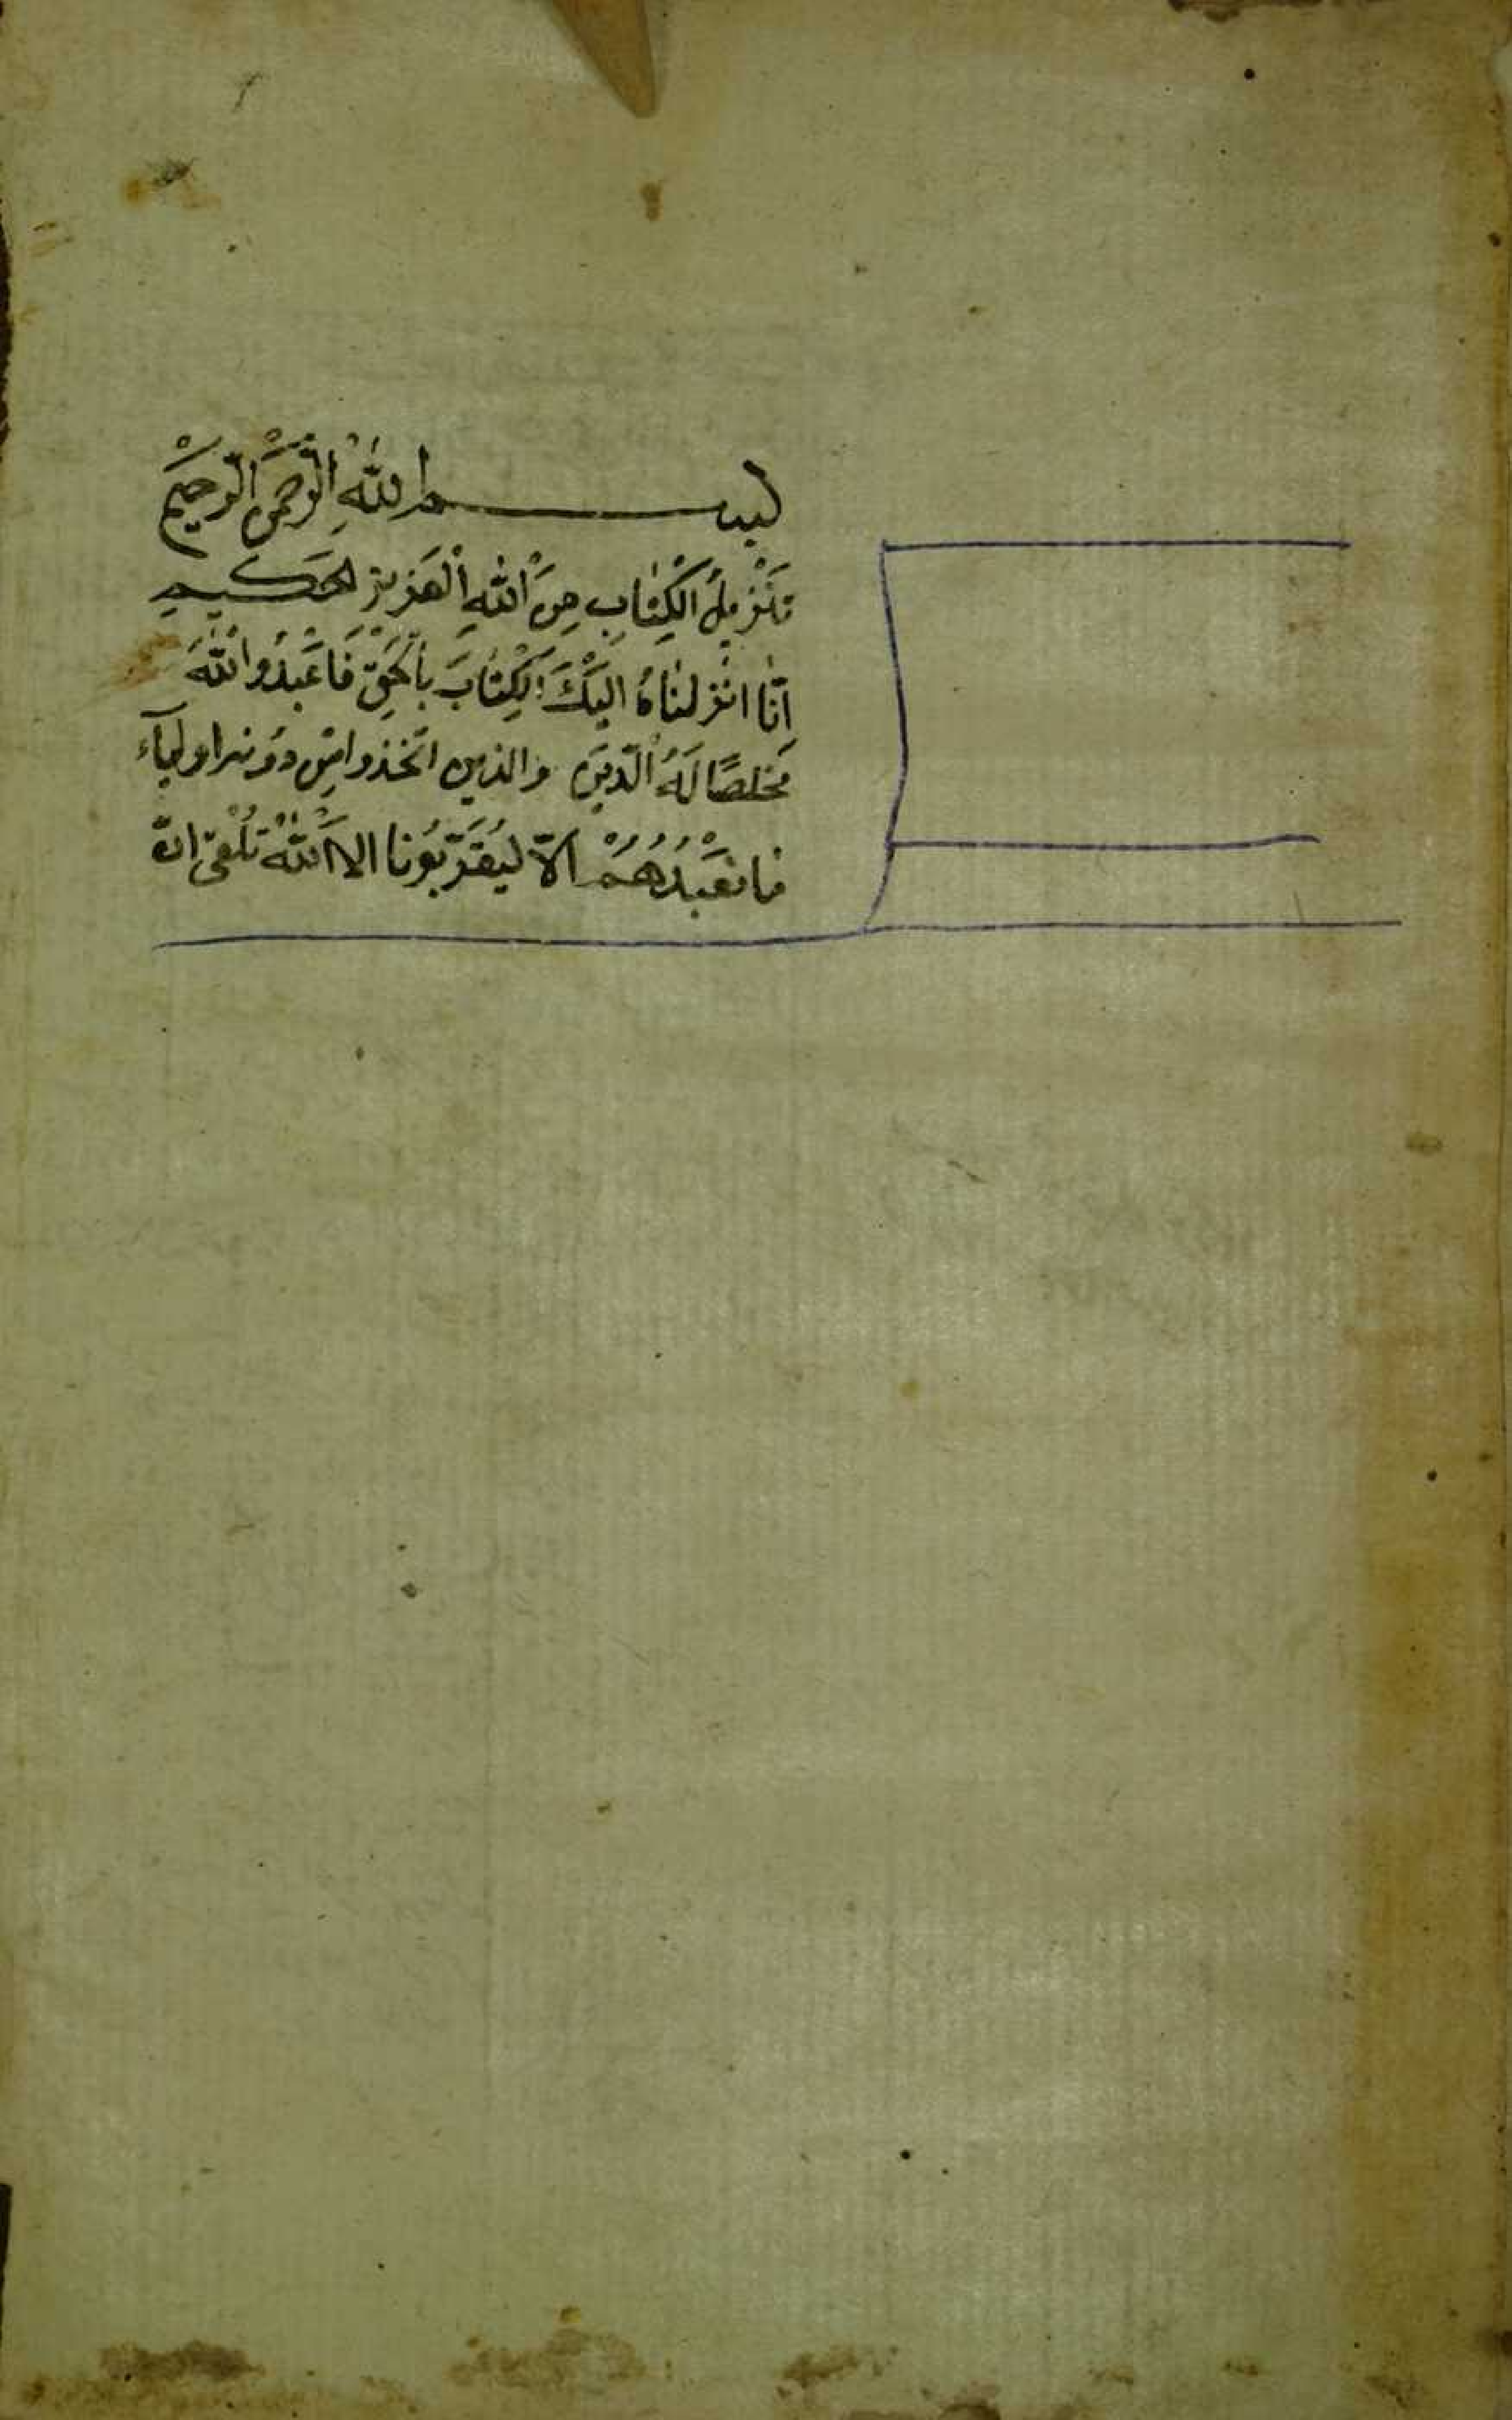 بسم الله الرحمن الرحيم
تَنْزِيلُ الْكِتَابِ مِنَ اللّٰهِ الْعَزِيزِ الحَكيمِ
اِنّا انْزلناهُ اليْكَ الكِتَابَ بِالْحَقِّ فَاعْبُدُوا اللّٰهَ
مخلصًا لَهُ الدّينَ والذين اتخذوا مِن دونه اولياء
مانعْبُدُهُمْ الاّ ليُقَرّبُونا الا اللّٰهْ